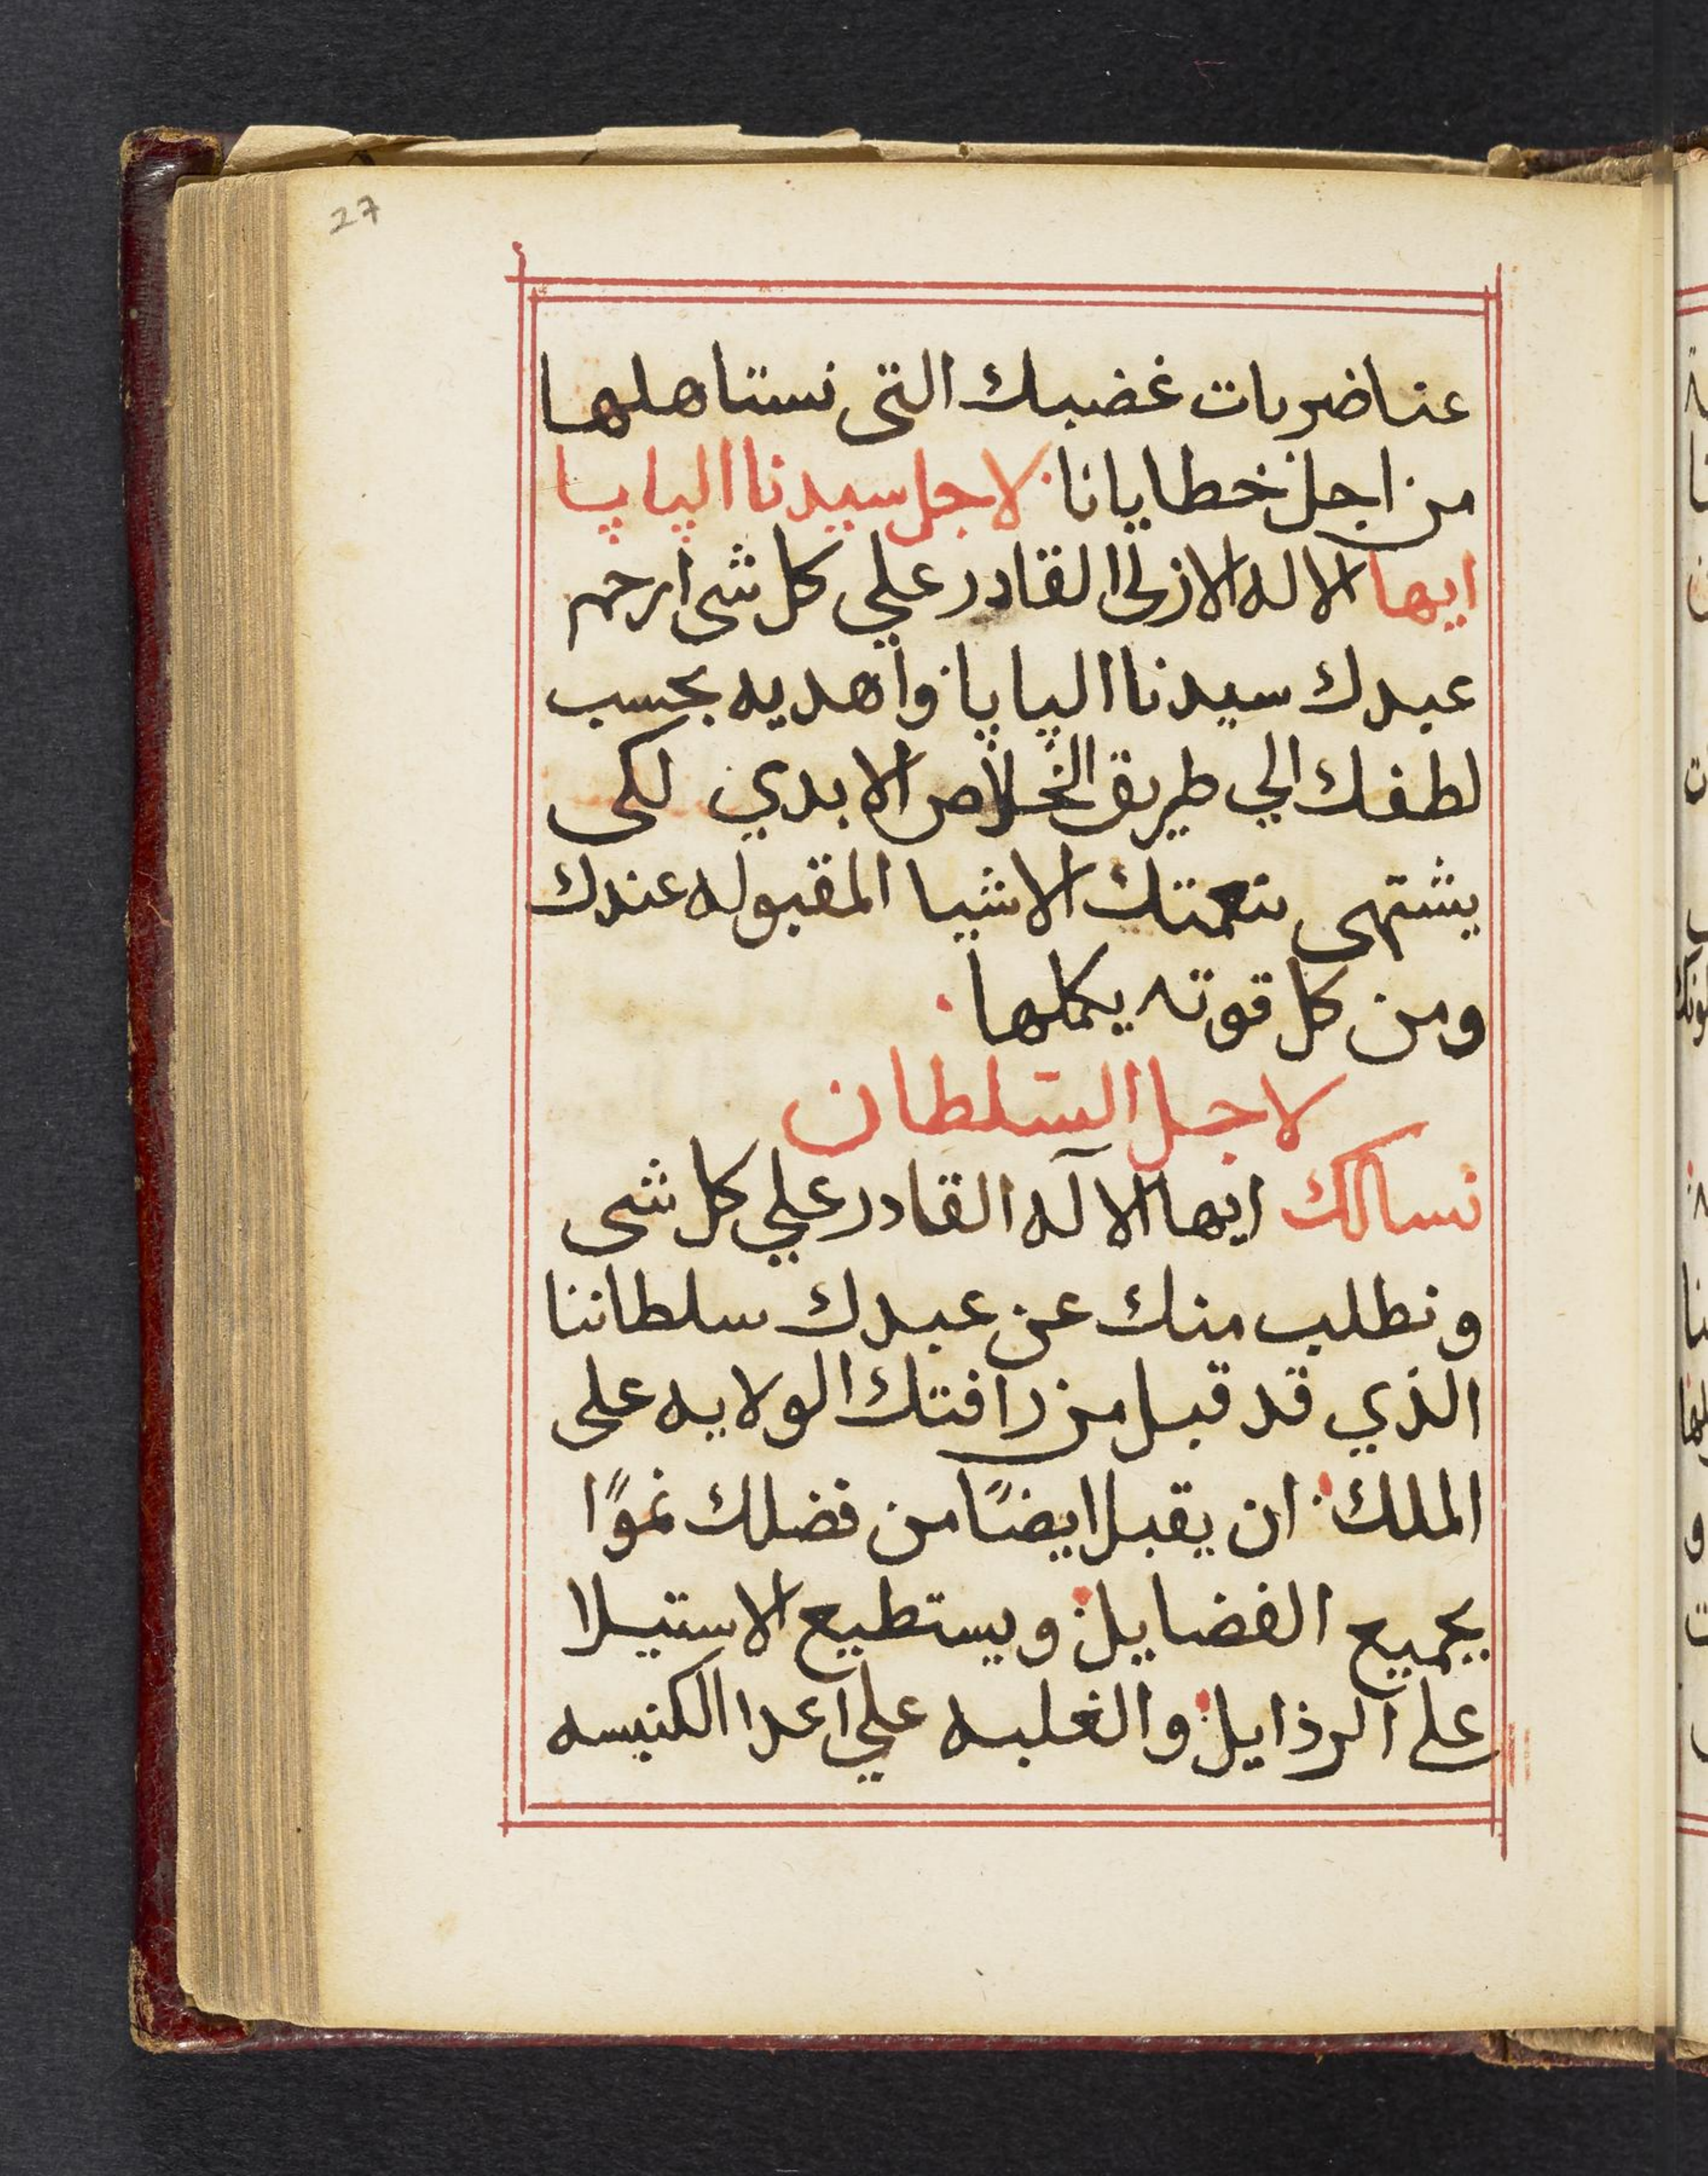 27
عنا ضربات غضبك التى نستاهلها
من اجل خطايانا لاجل سيدنا الپاپا
ايها الاله الازلى القادر علي كل شى ارحم
عبدك سيدنا الپاپا واهديه بحسب
لطفك الي طريق الخلاص الابدي لكى
يشتهى بنعمتك الاشيا المقبوله عندك
ومن كل قوته يكملها
لاجل السلطان
نسالك ايها الآله القادر علي كل شى
ونطلب منك عن عبدك سلطاننا
الذي قد قبل من رافتك الولايه على
الملك ان يقبل ايضًا من فضلك نموًا
بجميع الفضايل ويستطيع الاستيلا
على الرذايل والغلبه علي اعدا الكنيسه